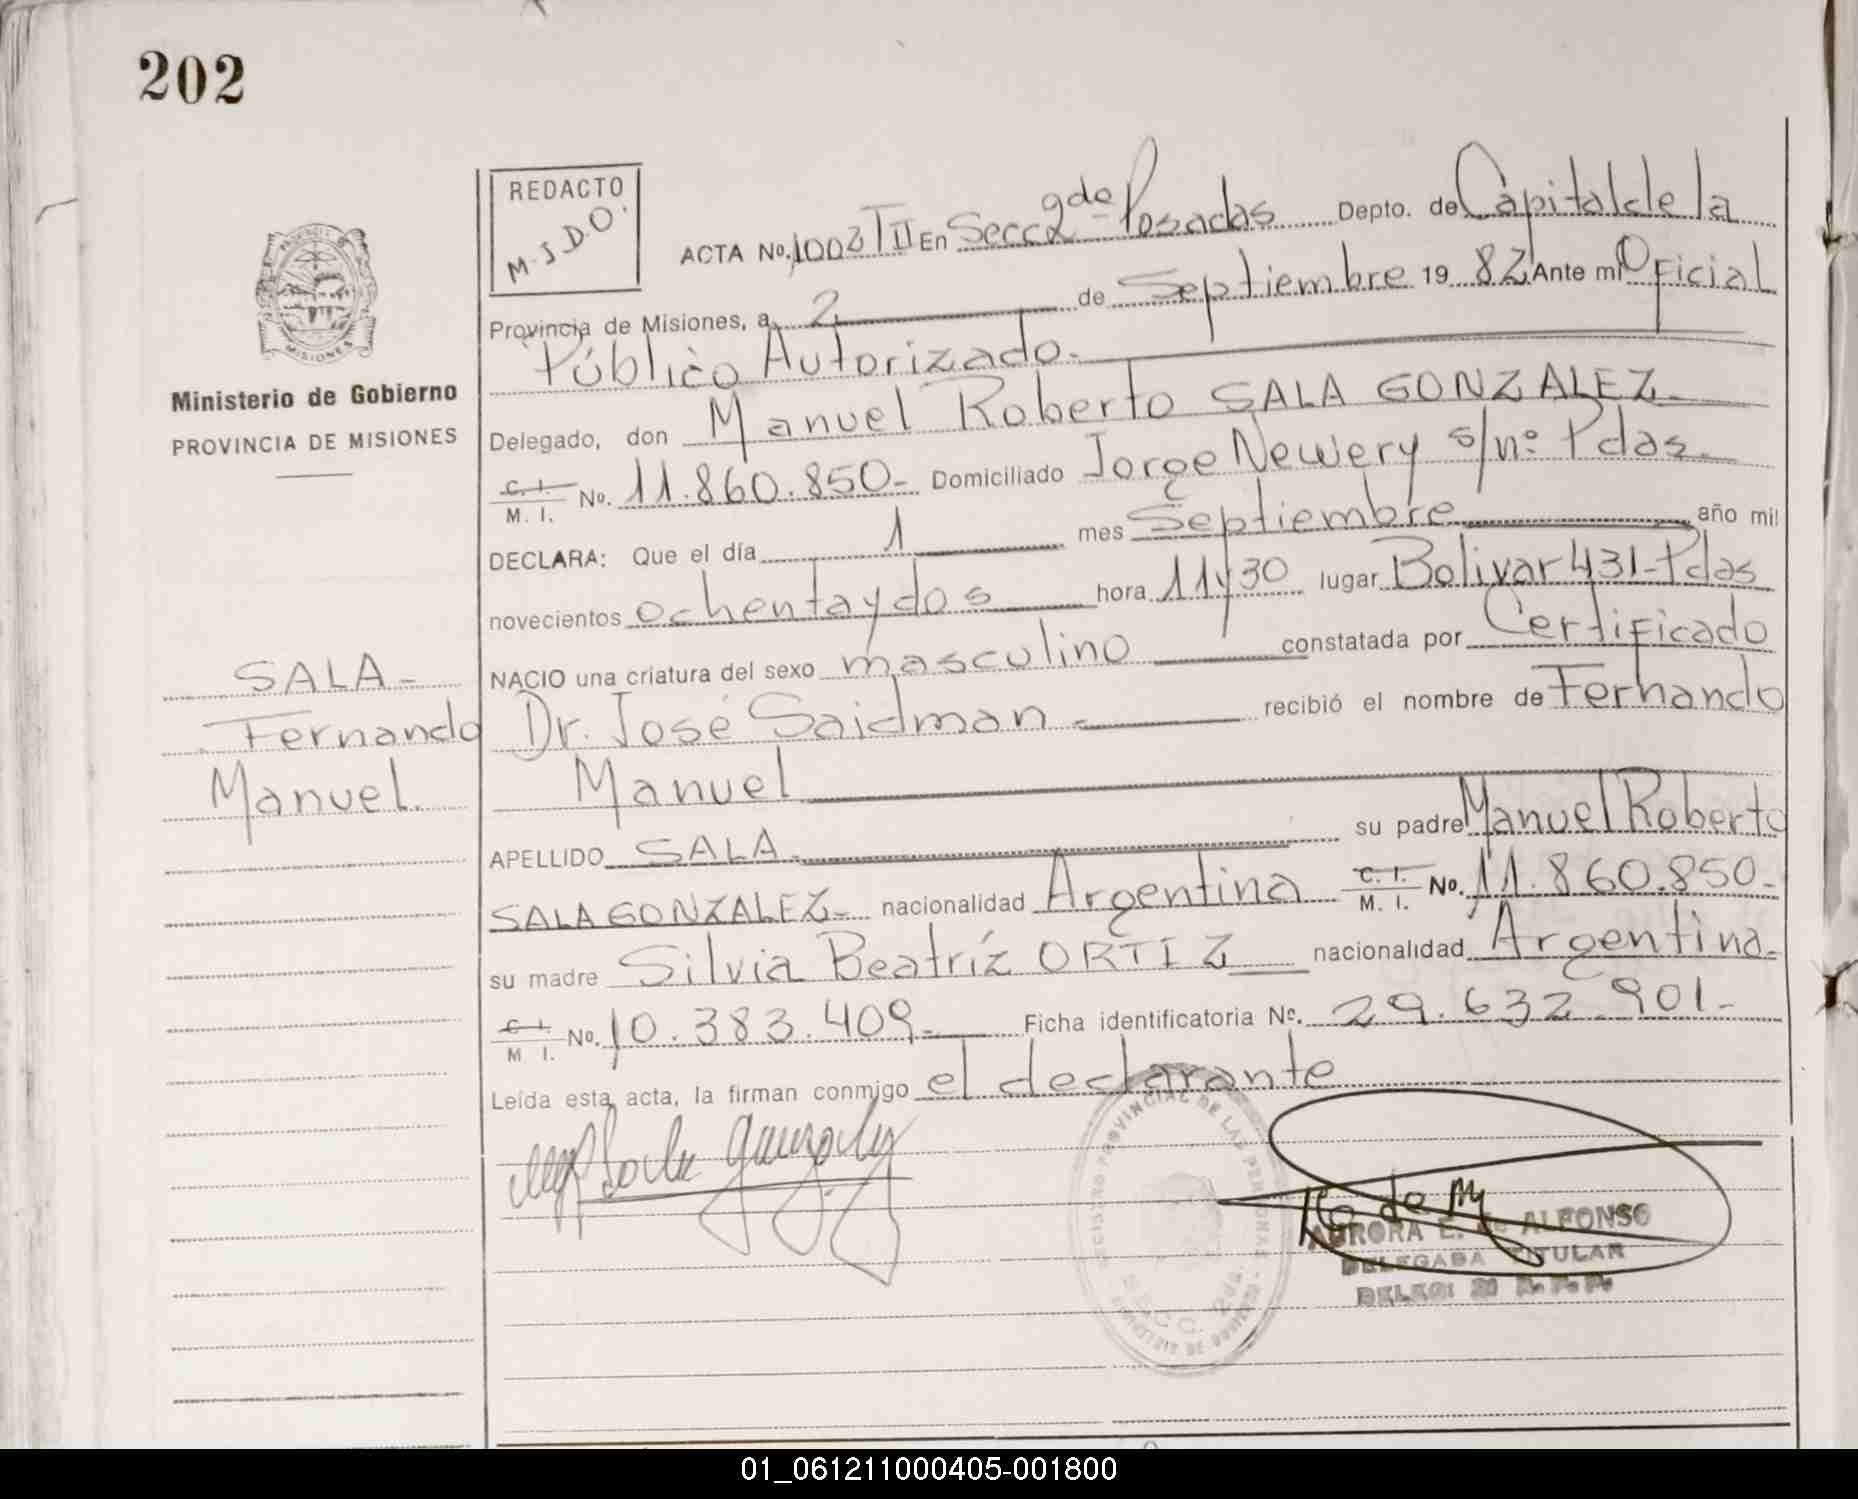 202
REDACTO
M.J.D.O.
ACTA No. 1003 TII En Secc 2da Posadas Depto. de Capital de la
Provincia de Misiones, a 2 de Septiembre 1982 Ante mi Oficial
Público Autorizado.
Delegado, don Manuel Roberto SALA GONZALEZ
C. I.
M. I. No. 11.860.850- Domiciliado Jorge Newery s/nº Pdas.
DECLARA: Que el día 1 mes Septiembre año mil
novecientos ochentaydos hora 11y30 lugar Bolivar 431-Pdas
NACIO una criatura del sexo masculino constatada por Certificado
Dr. José Saidman recibió el nombre de Fernando
Manuel
APELLIDO SALA su padre Manuel Roberto
SALA GONZALEZ nacionalidad Argentina C. I.
M. I. No. 11.860.850-
su madre Silvia Beatríz ORTIZ nacionalidad Argentina-
C. I.
M I. No. 10.383.409- Ficha identificatoria No. 29.632.901-
Leída esta acta, la firman conmigo el declarante
Ministerio de Gobierno
PROVINCIA DE MISIONES
SALA-
Fernando
Manuel.
MISIONES
AURORA E. de ALFONSO
DELEGADA TITULAR
01_061211000405-001800